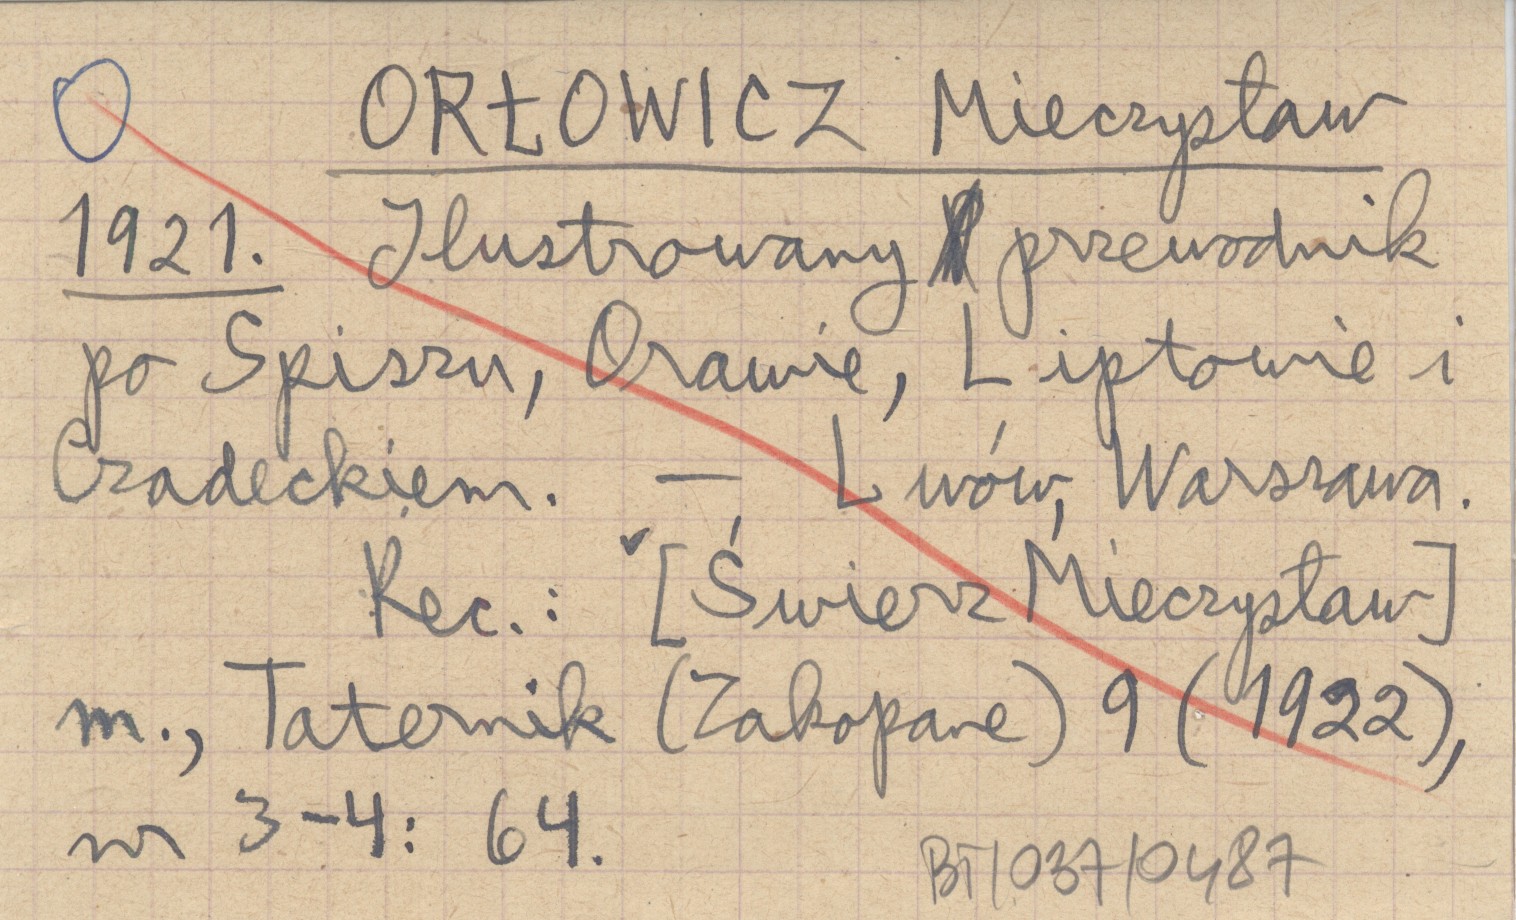 O ORŁOWICZ Mieczysław
1921. Ilustrowany przewodnik
po Spiszu, Orawie, Liptowie i
Czadeckiem. — Lwów, Warszawa.
Rec.: [Świerz Mieczysław]
m., Taternik (Zakopane) 9 (1922),
nr 3-4: 64.
BT/037/0487